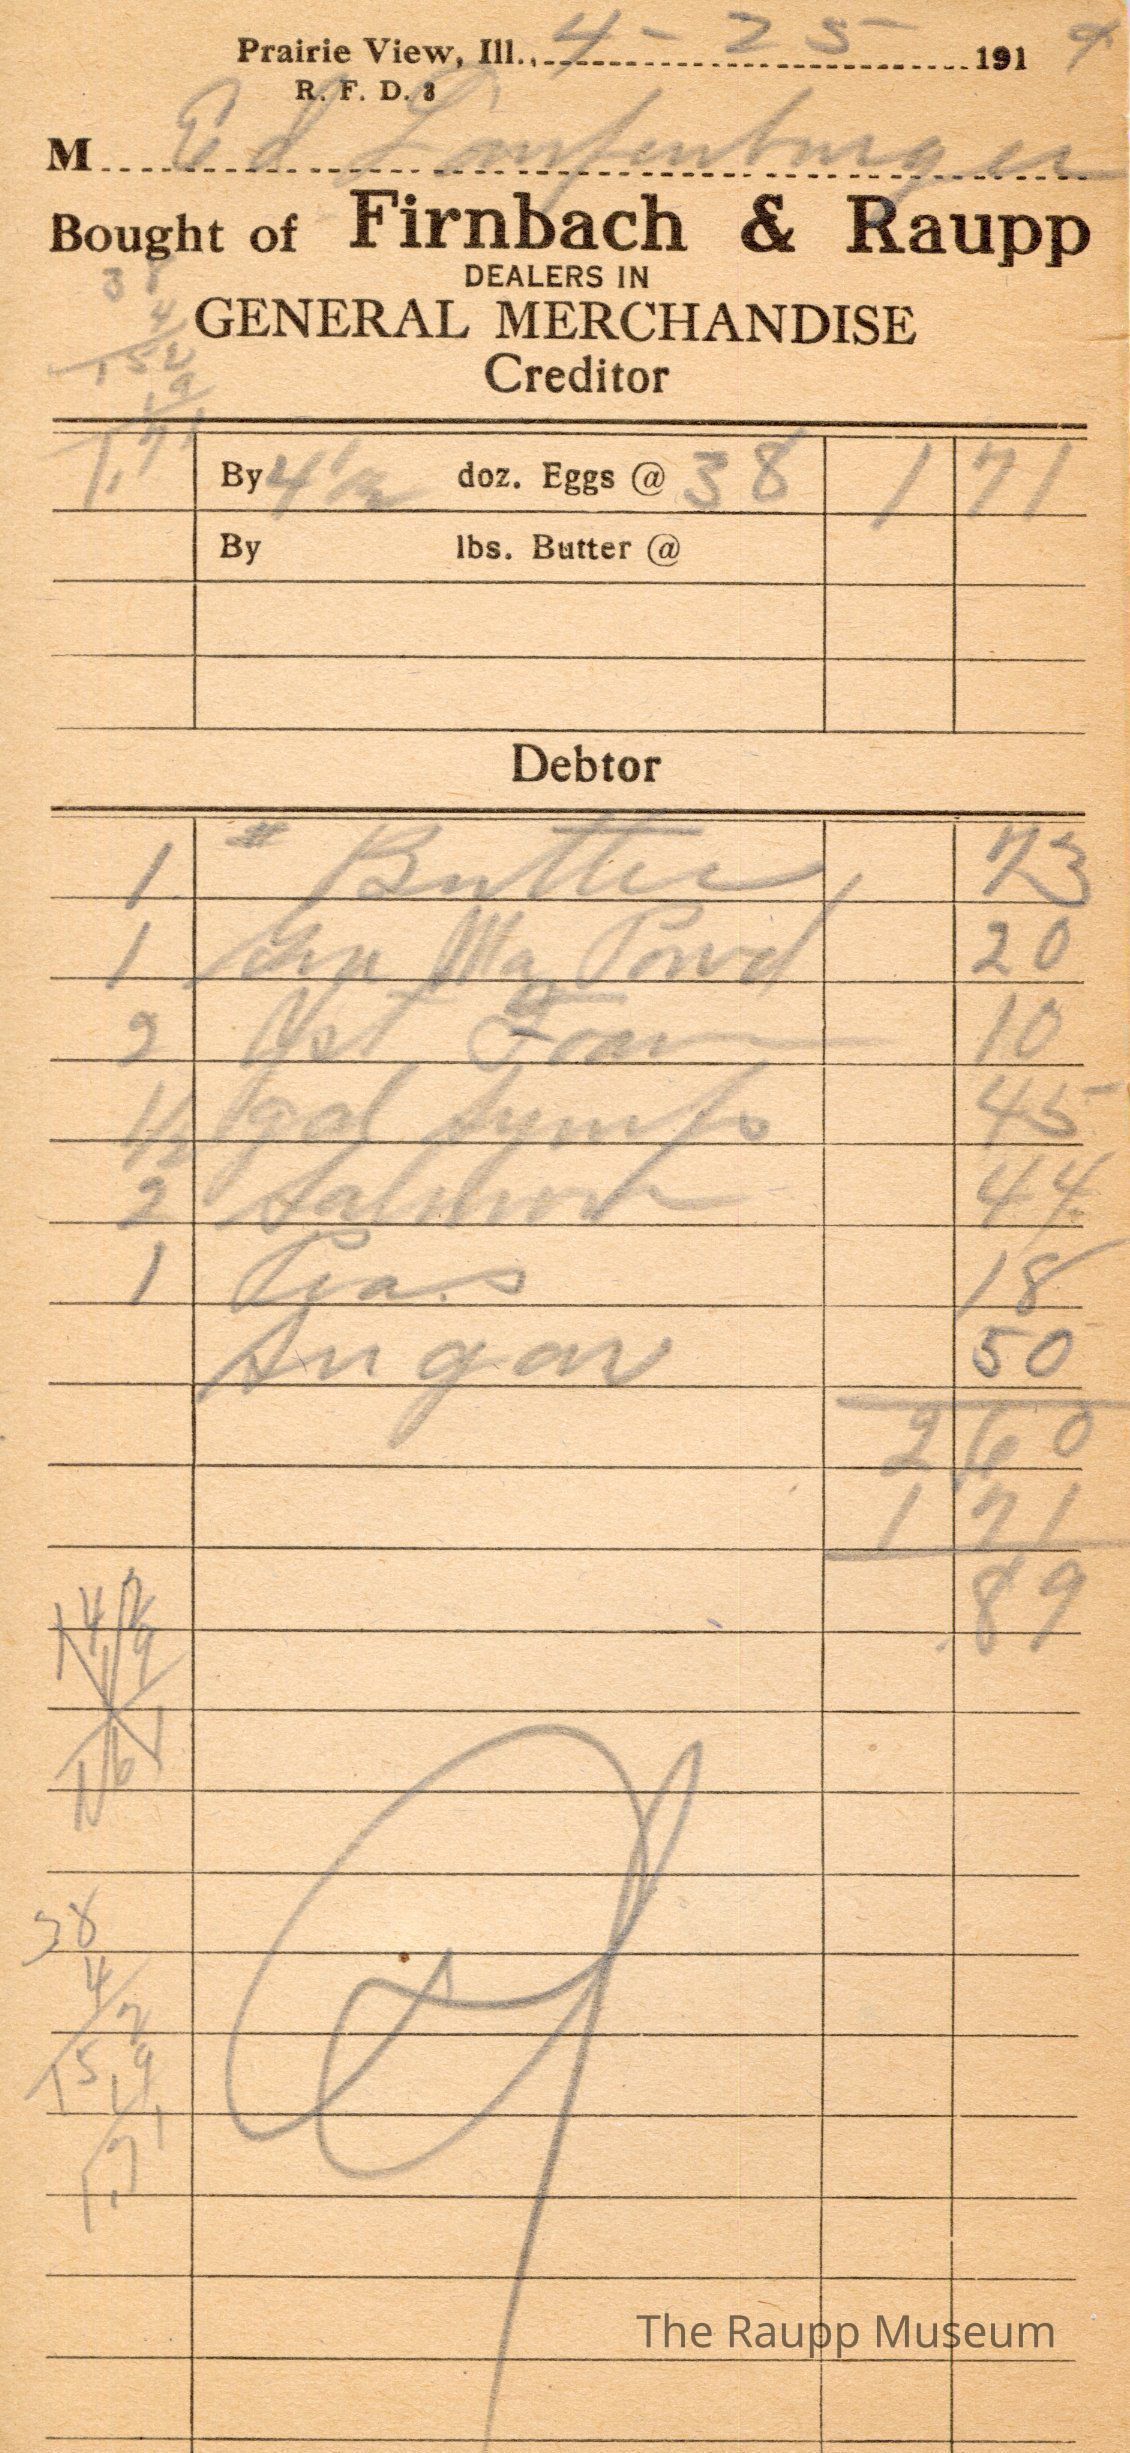 Prairie View, Ill., 4-25 1919
R. F. D. 3
M Ed Laufenburger
Bought of Firnbach & Raupp
DEALERS IN
GENERAL MERCHANDISE
Creditor
38
4
152
19
1.71
By 4 1/2 doz. Eggs @ 38 1 71
By lbs. Butter @
Debtor
1 # Butter 73
1 Wa Powd 20
2 Yst Foam 10
1/2 gal Syrup 45
2 Salmon 44
1 Peas 18
Sugar 50
2 60
1 71
.89
38
4
152
19
1.71
The Raupp Museum